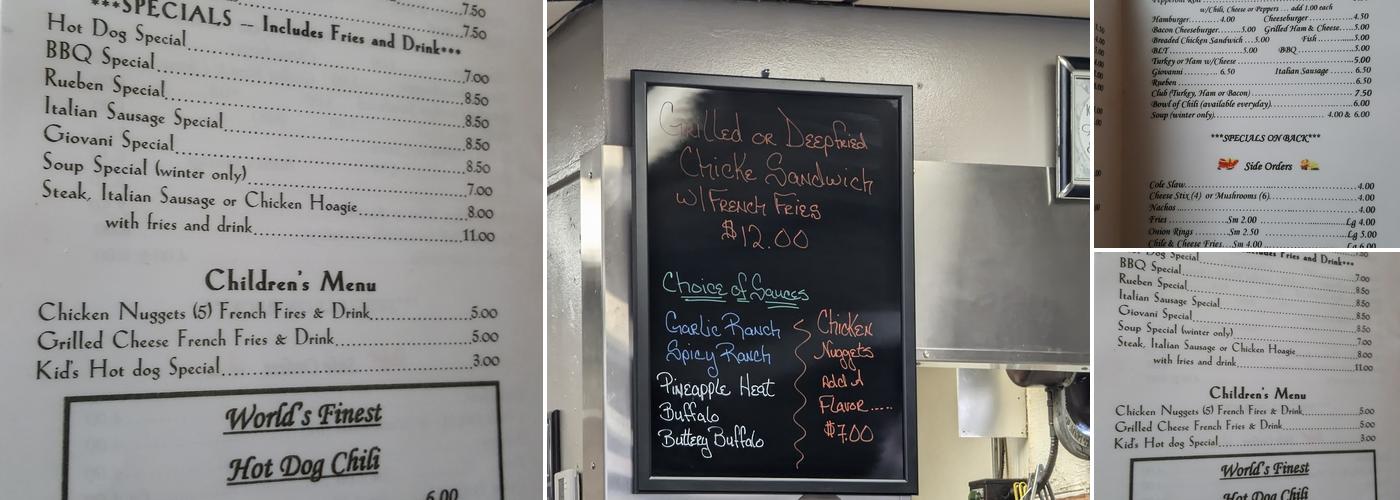 7.50
7.50
***SPECIALS – Includes Fries and Drink***
Hot Dog Special 7.00
BBQ Special 8.50
Rueben Special 8.50
Italian Sausage Special 8.50
Giovani Special 7.00
Soup Special (winter only) 8.00
Steak, Italian Sausage or Chicken Hoagie
with fries and drink 11.00
Children's Menu
Chicken Nuggets (5) French Fires & Drink 5.00
Grilled Cheese French Fries & Drink 5.00
Kid's Hot dog Special 3.00
World's Finest
Hot Dog Chili
6.00
Grilled or Deepfried
Chicke Sandwich
w/ French Fries
$12.00
Choice of Sauces
Garlic Ranch
Spicy Ranch
Pineapple Heat
Buffalo
Buttery Buffalo
Chicken
Nuggets
Add A
Flavor.....
$7.00
Pepperoni Roll
w/Chili, Cheese or Peppers ... add 1.00 each
Hamburger 4.00 Cheeseburger 4.50
Bacon Cheeseburger 5.00 Grilled Ham & Cheese 5.00
Breaded Chicken Sandwich 5.00 Fish 5.00
BLT 5.00 BBQ 5.00
Turkey or Ham w/Cheese 5.00
Giovanni 6.50 Italian Sausage 6.50
Rueben 6.50
Club (Turkey, Ham or Bacon) 7.50
Bowl of Chili (available everyday) 6.00
Soup (winter only) 4.00 & 6.00
***SPECIALS ON BACK***
Side Orders
Cole Slaw 4.00
Cheese Stix (4) or Mushrooms (6) 4.00
Nachos 4.00
Fries Sm 2.00 Lg 4.00
Onion Rings Sm 2.50 Lg 5.00
Chile & Cheese Fries Sm 4.00 Lg 6.00
Dog Special 7.00
BBQ Special 8.50
Rueben Special 8.50
Italian Sausage Special 8.50
Giovani Special 7.00
Soup Special (winter only) 8.00
Steak, Italian Sausage or Chicken Hoagie
with fries and drink 11.00
Children's Menu
Chicken Nuggets (5) French Fires & Drink 5.00
Grilled Cheese French Fries & Drink 5.00
Kid's Hot dog Special 3.00
World's Finest
Hot Dog Chili